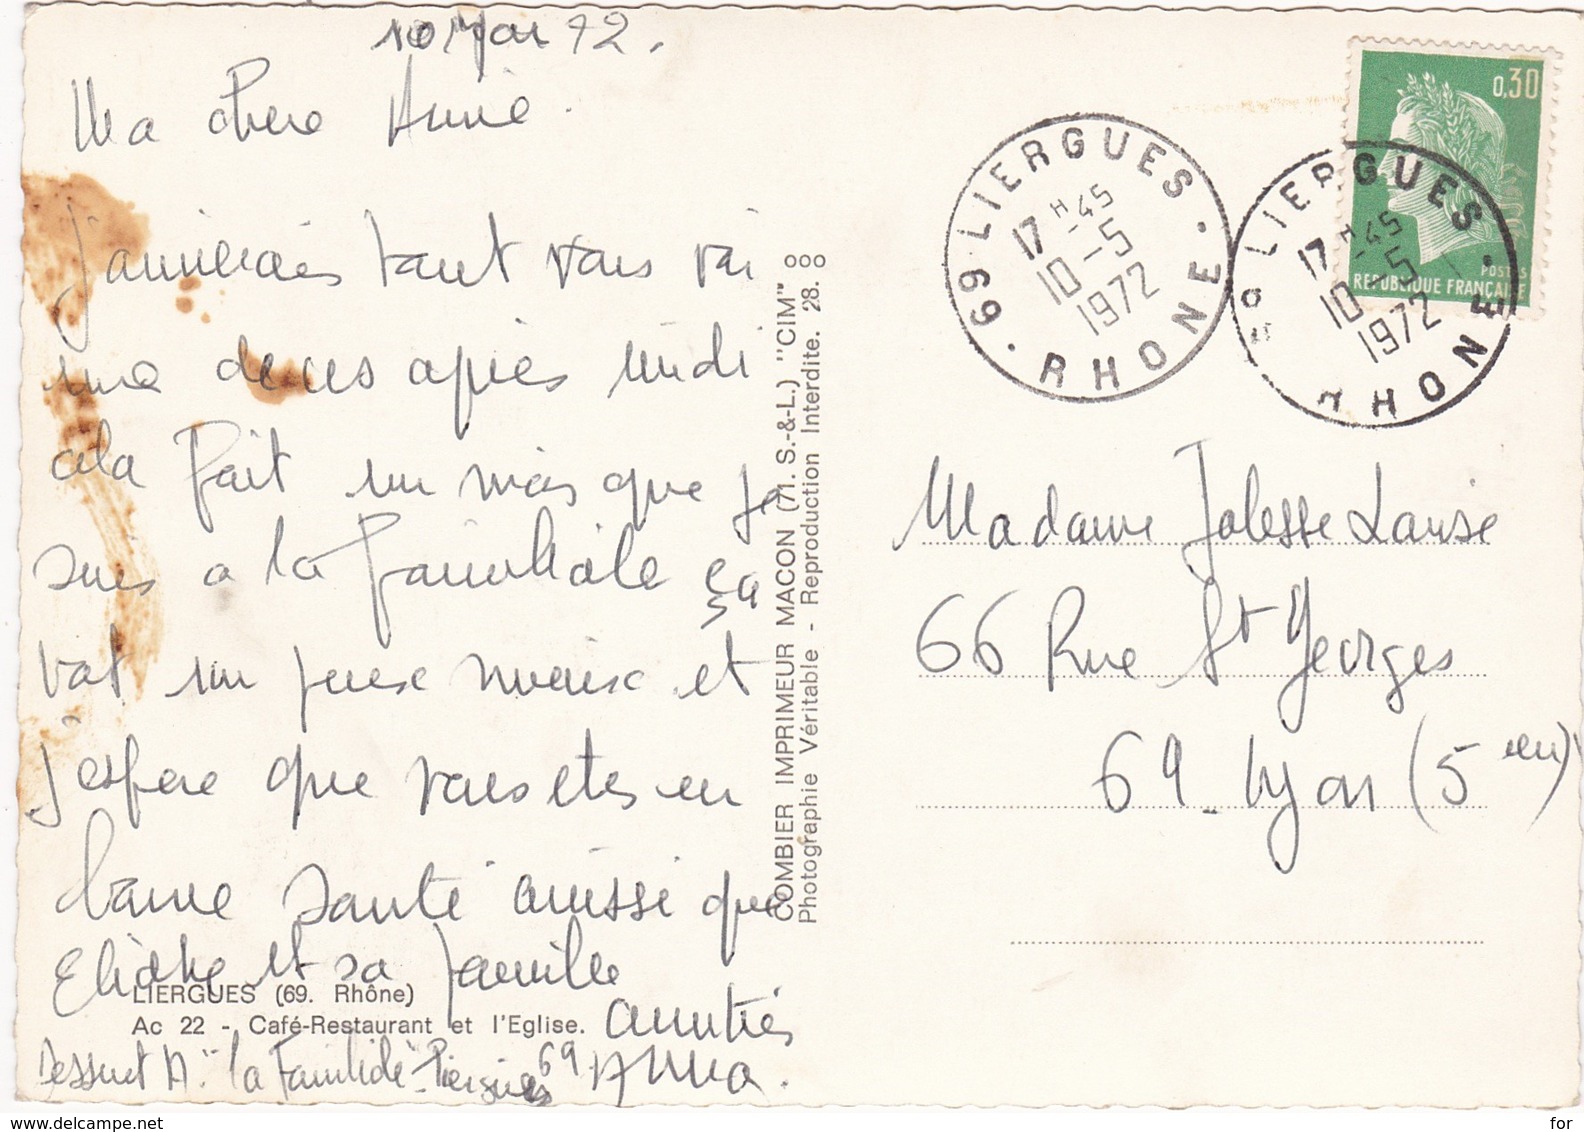 10 Mai 72.
Ma chere Annie.
J'aimerais tant vous voi
une de ces après midi
cela fait un mois que je
suis a la Familiale ça
vat un peux mieux et
j'espere que vous etes en
bonne santé aussi que
Eliane et sa famille
amitiés
Anna.
Dessuet A. "la Familiale" Liergues 69
LIERGUES (69. Rhône)
Ac 22 - Café-Restaurant et l'Eglise.
COMBIER IMPRIMEUR MACON (71. S.-&-L.) "CIM"
Photographie Véritable - Reproduction Interdite. 28.
69 LIERGUES
17 H 45
10 - 5
1972
RHONE
69 LIERGUES
17 H 45
10 - 5
1972
RHONE
0,30
POSTES
REPUBLIQUE FRANÇAISE
Madame Jolesse Louise
66 Rue St Georges
69 - Lyon (5 em)
for
www.delcampe.net